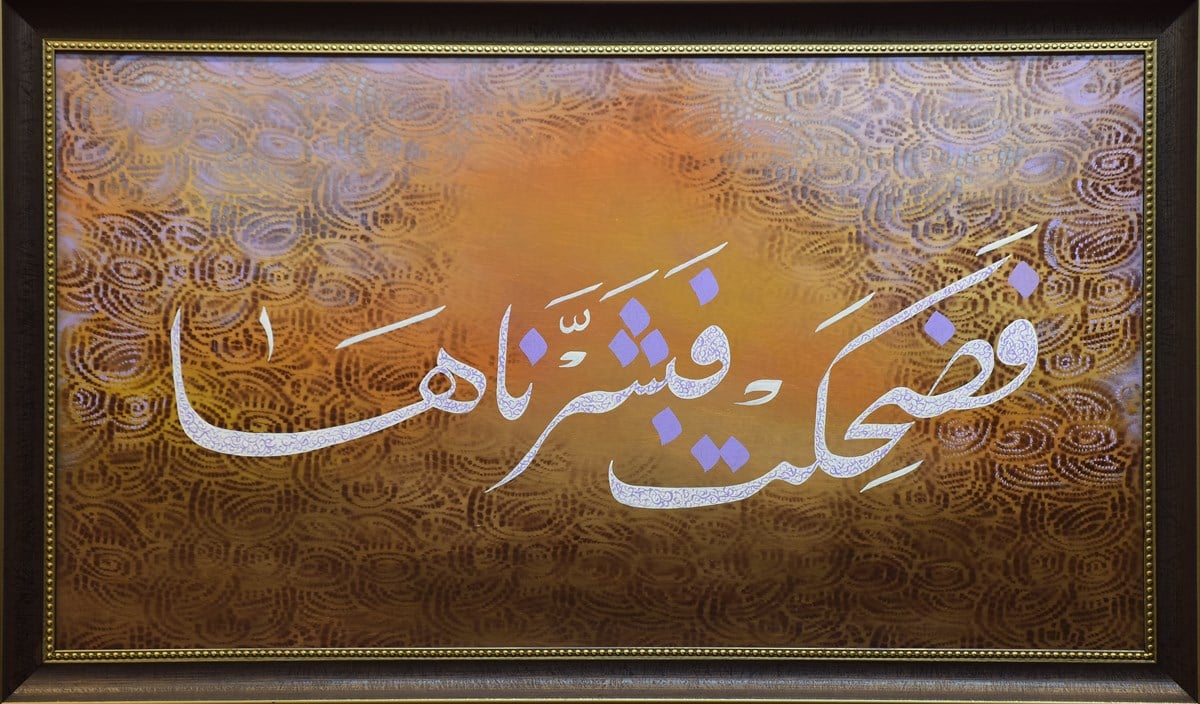 فَضَحِكَتْ فَبَشَّرْنَاهَا